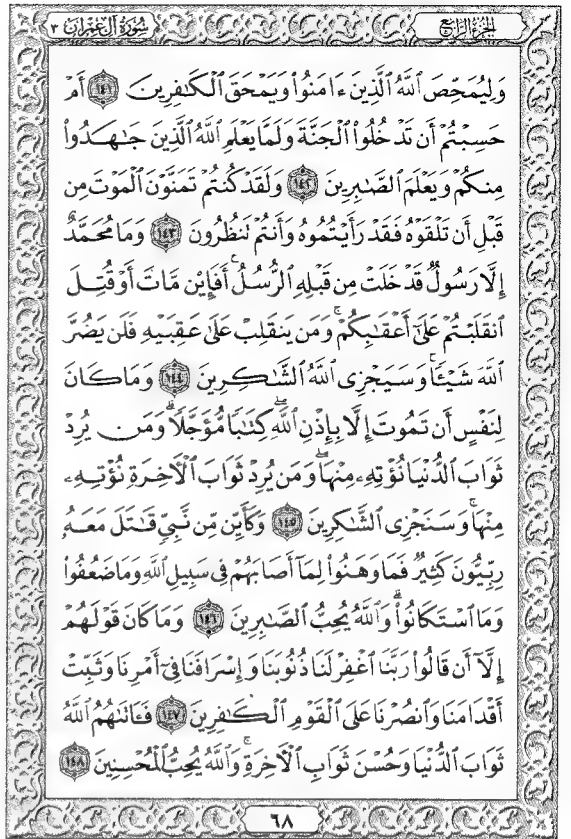 الجزء الرابع
سورة آل عمران ٣
وَلِيُمَحِّصَ ٱللَّهُ ٱلَّذِينَ ءَامَنُواْ وَيَمْحَقَ ٱلْكَٰفِرِينَ ١٤١ أَمْ
حَسِبْتُمْ أَن تَدْخُلُواْ ٱلْجَنَّةَ وَلَمَّا يَعْلَمِ ٱللَّهُ ٱلَّذِينَ جَٰهَدُواْ
مِنكُمْ وَيَعْلَمَ ٱلصَّٰبِرِينَ ١٤٢ وَلَقَدْ كُنتُمْ تَمَنَّوْنَ ٱلْمَوْتَ مِن
قَبْلِ أَن تَلْقَوْهُ فَقَدْ رَأَيْتُمُوهُ وَأَنتُمْ تَنظُرُونَ ١٤٣ وَمَا مُحَمَّدٌ
إِلَّا رَسُولٌ قَدْ خَلَتْ مِن قَبْلِهِ ٱلرُّسُلُ ۚ أَفَإِيْن مَّاتَ أَوْ قُتِلَ
ٱنقَلَبْتُمْ عَلَىٰٓ أَعْقَٰبِكُمْ ۚ وَمَن يَنقَلِبْ عَلَىٰ عَقِبَيْهِ فَلَن يَضُرَّ
ٱللَّهَ شَيْـًٔا ۗ وَسَيَجْزِى ٱللَّهُ ٱلشَّٰكِرِينَ ١٤٤ وَمَا كَانَ
لِنَفْسٍ أَن تَمُوتَ إِلَّا بِإِذْنِ ٱللَّهِ كِتَٰبًا مُّؤَجَّلًا ۗ وَمَن يُرِدْ
ثَوَابَ ٱلدُّنْيَا نُؤْتِهِۦ مِنْهَا ۖ وَمَن يُرِدْ ثَوَابَ ٱلْأَخِرَةِ نُؤْتِهِۦ
مِنْهَا ۚ وَسَنَجْزِى ٱلشَّٰكِرِينَ ١٤٥ وَكَأَيِّن مِّن نَّبِىٍّ قَٰتَلَ مَعَهُۥ
رِبِّيُّونَ كَثِيرٌ فَمَا وَهَنُواْ لِمَآ أَصَابَهُمْ فِى سَبِيلِ ٱللَّهِ وَمَا ضَعُفُواْ
وَمَا ٱسْتَكَانُواْ ۗ وَٱللَّهُ يُحِبُّ ٱلصَّٰبِرِينَ ١٤٦ وَمَا كَانَ قَوْلَهُمْ
إِلَّآ أَن قَالُواْ رَبَّنَا ٱغْفِرْ لَنَا ذُنُوبَنَا وَإِسْرَافَنَا فِىٓ أَمْرِنَا وَثَبِّتْ
أَقْدَامَنَا وَٱنصُرْنَا عَلَى ٱلْقَوْمِ ٱلْكَٰفِرِينَ ١٤٧ فَـَٔاتَىٰهُمُ ٱللَّهُ
ثَوَابَ ٱلدُّنْيَا وَحُسْنَ ثَوَابِ ٱلْأَخِرَةِ ۗ وَٱللَّهُ يُحِبُّ ٱلْمُحْسِنِينَ ١٤٨
٦٨